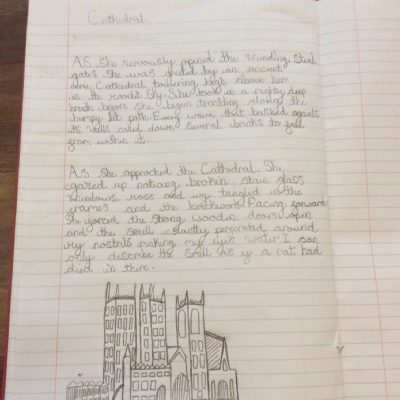 Cathedral
As she nervously opened the
gate she was greeted by an ancient
Cathedral towering high above her
in the moodit sky. She took in a mighty deep
breath before she began trembling along the
bumpy path. Every wave that bashed againts
its walls called down several bricks to fall
from within it.
As she approched the Cathedral, She
gazed up noticing broken stain glass
windows. moss and ivy tangled in the
frames and the brickwork. Pacing forward
She forced the strong wooden doors open
and the smell instantly penerated around
my nostrils making my eyes water. I can
only describe the smell as if a rat had
died in there.